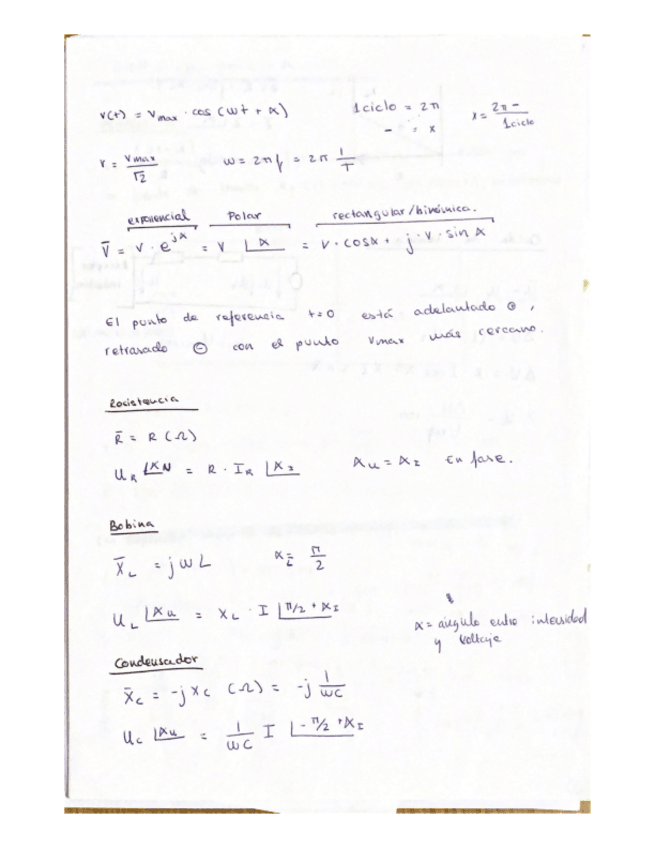 v(t) = Vmax · cos (wt + α) 1 ciclo = 2π x = 2π - / 1 ciclo
- = x
V = Vmax / √2 w = 2πf = 2π 1/T
exponencial Polar rectangular/binómica.
V̄ = V · e^jα = V ∠α = V · cosα + j · V · sin α
El punto de referencia t=0 está adelantado ⊕,
retrasado ⊖ con el punto Vmax más cercano.
Resistencia
R̄ = R (Ω)
U_R ∠αu = R · I_R ∠α_I αu = α_I En fase.
Bobina
X̄_L = jωL α_L = π/2
U_L ∠αu = X_L · I ∠π/2 + α_I
α = ángulo entre intensidad
y voltaje
Condensador
X̄c = -j Xc (Ω) = -j 1/ωC
Uc ∠αu = 1/ωC I ∠-π/2 + α_I